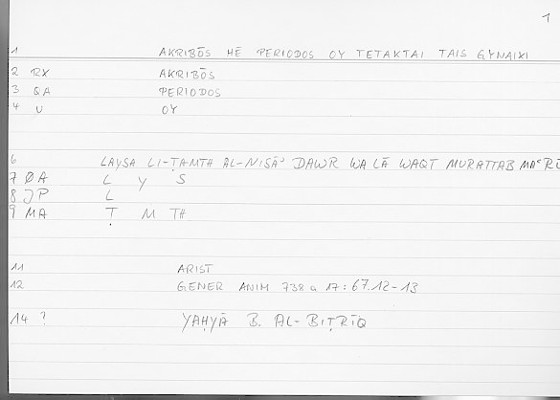 1
1 AKRIBŌS HĒ PERIODOS OY TETAKTAI TAIS GYNAIXI
2 RX AKRIBŌS
3 &A PERIODOS
4 U OY
6 LAYSA LI-ṬAMTH AL-NISĀʾ DAWR WA LĀ WAQT MURATTAB MAʿRŪ
7 ØA L Y S
8 JP L
9 MA Ṭ M TH
11 ARIST
12 GENER ANIM 738 a 17: 67.12-13
14 ? YAḤYĀ B. AL-BIṬRĪQ